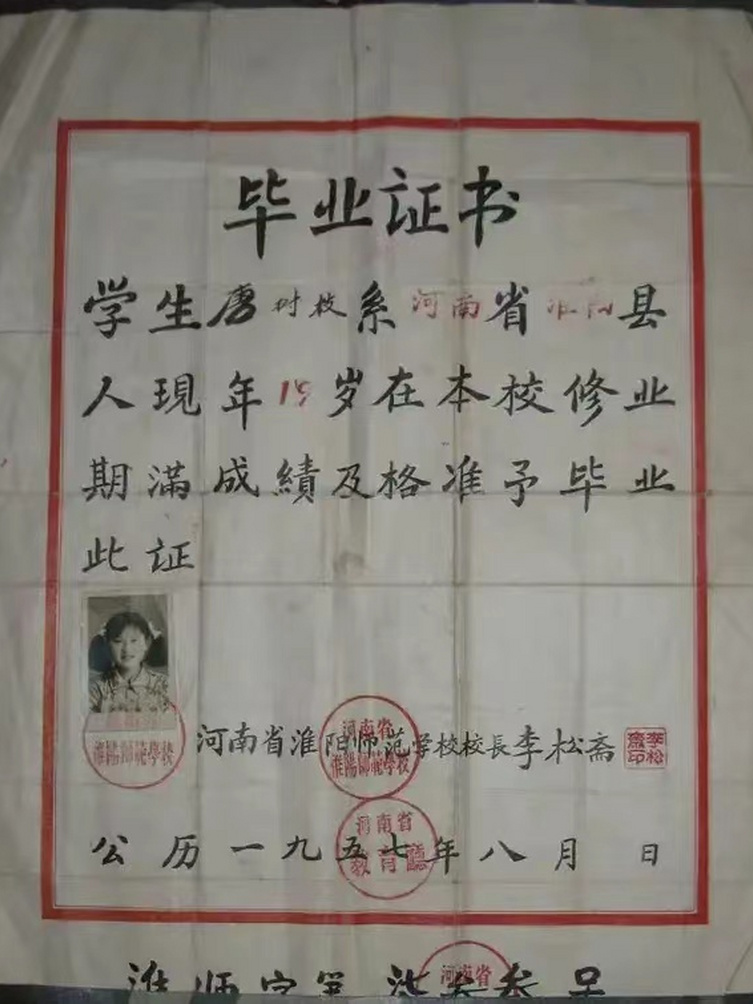 毕业证书
学生唐树枝系河南省淮阳县
人現年19岁在本校修业
期満成績及格准予毕业
此证
淮陽師範學校
河南省淮阳师范学校校長李松斋
河南省
淮陽師範學校
李松齋印
公历一九五七年八月 日
河南省
教育廳
淮师字第 号
河南省